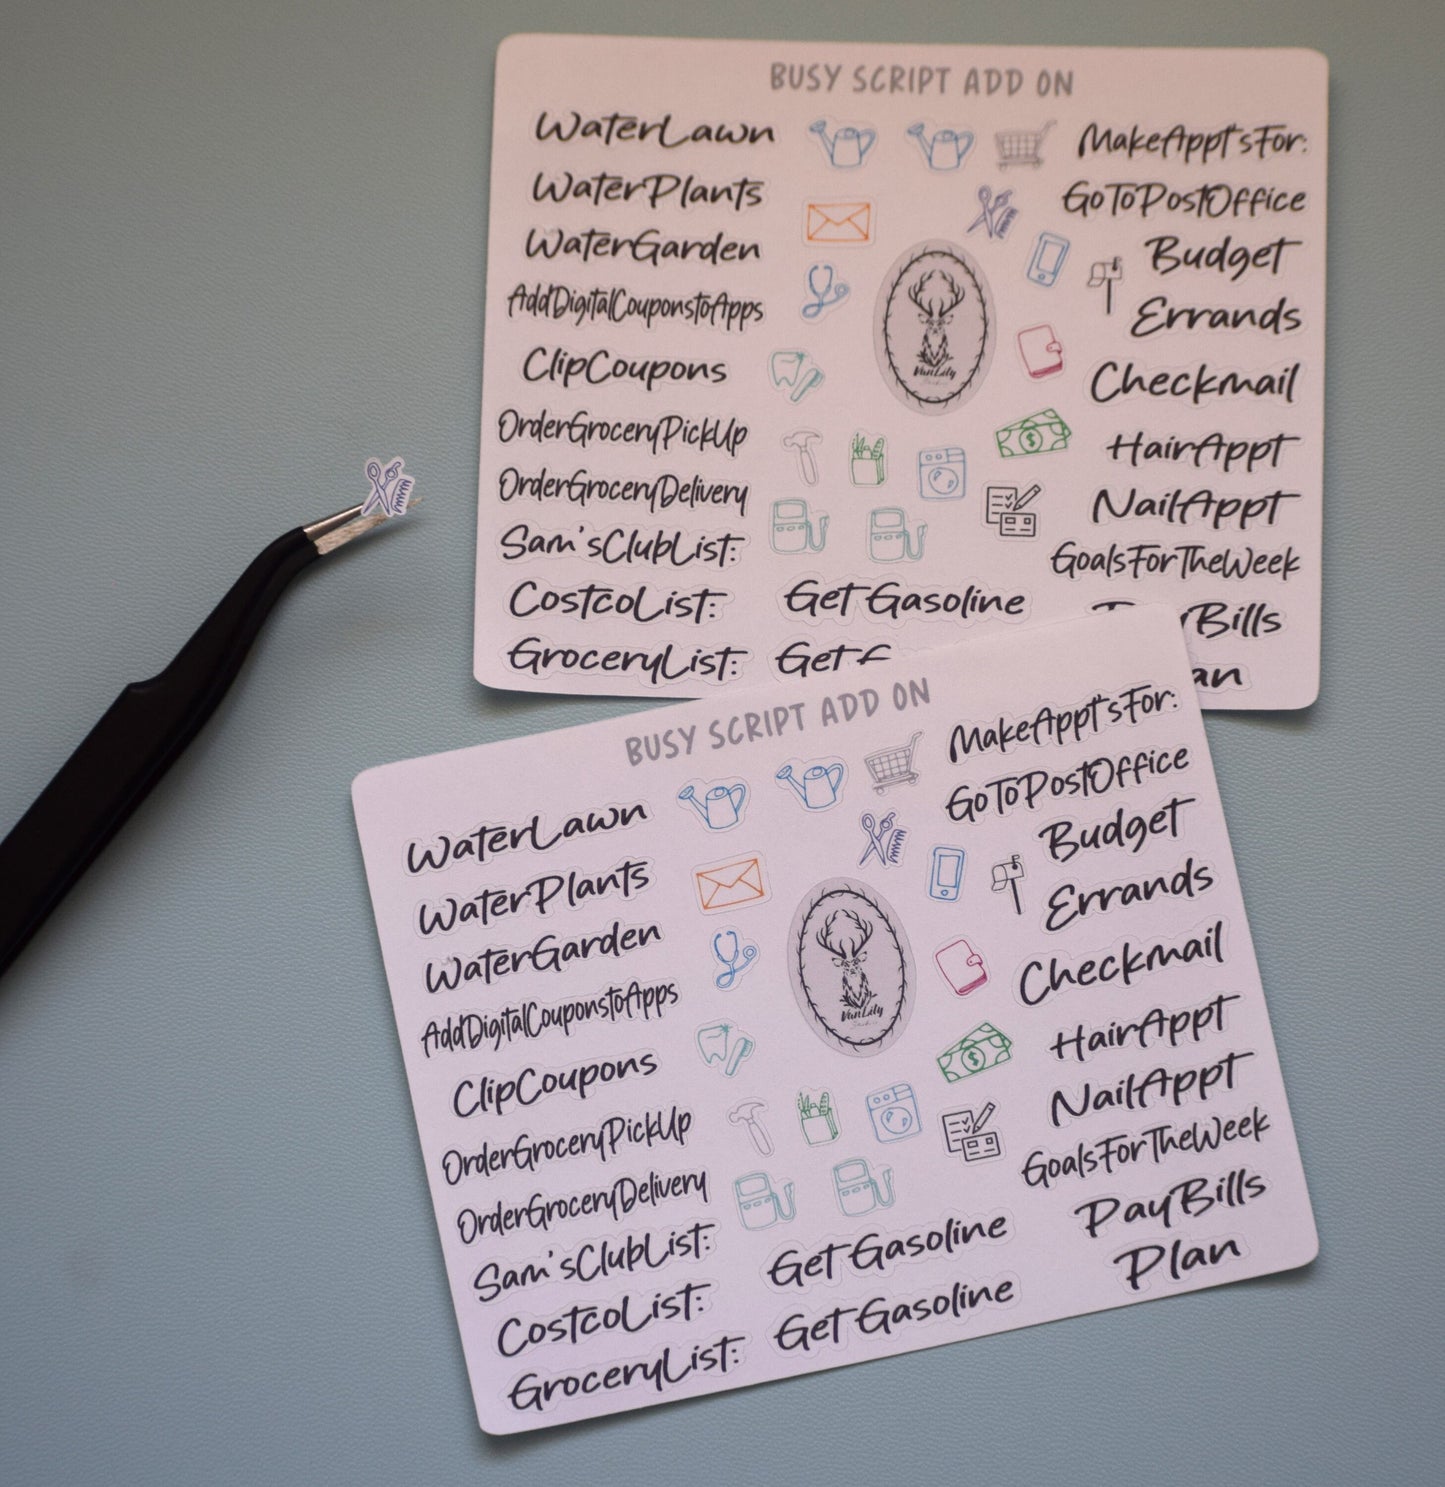 BUSY SCRIPT ADD ON
WaterLawn
WaterPlants
WaterGarden
AddDigitalCouponstoApps
ClipCoupons
OrderGroceryPickUp
OrderGroceryDelivery
Sam'sClubList:
CostcoList:
GroceryList:
VanLily
Get Gasoline
Get
MakeAppt'sFor:
GoToPostOffice
Budget
Errands
Checkmail
HairAppt
NailAppt
GoalsForTheWeek
Bills
an
BUSY SCRIPT ADD ON
WaterLawn
WaterPlants
WaterGarden
AddDigitalCouponstoApps
ClipCoupons
OrderGroceryPickUp
OrderGroceryDelivery
Sam'sClubList:
CostcoList:
GroceryList:
VanLily
Get Gasoline
Get Gasoline
MakeAppt'sFor:
GoToPostOffice
Budget
Errands
Checkmail
HairAppt
NailAppt
GoalsForTheWeek
PayBills
Plan